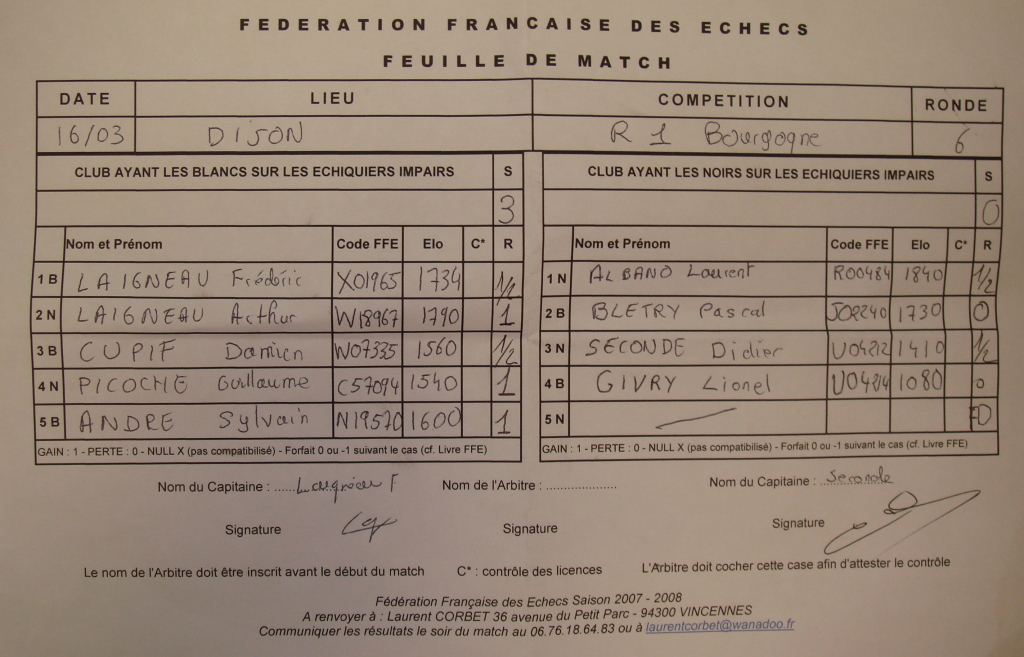 FEDERATION FRANCAISE DES ECHECS
FEUILLE DE MATCH
DATE LIEU COMPETITION RONDE
16/03 DIJON R 1 Bourgogne 6
CLUB AYANT LES BLANCS SUR LES ECHIQUIERS IMPAIRS S CLUB AYANT LES NOIRS SUR LES ECHIQUIERS IMPAIRS S
3 0
Nom et Prénom Code FFE Elo C* R Nom et Prénom Code FFE Elo C* R
1 B LAIGNEAU Frédéric X01965 1734 1/2 1 N ALBANO Laurent R00484 1840 1/2
2 N LAIGNEAU Arthur W18967 1790 1 2 B BLETRY Pascal J02240 1730 0
3 B CUPIF Damien W07335 1560 1/2 3 N SECONDE Didier U04212 1410 1/2
4 N PICOCHE Guillaume C57094 1540 1 4 B GIVRY Lionel U04814 1080 0
5 B ANDRE Sylvain N19570 1600 1 5 N
GAIN : 1 - PERTE : 0 - NULL X (pas compatibilisé) - Forfait 0 ou -1 suivant le cas (cf. Livre FFE) GAIN : 1 - PERTE : 0 - NULL X (pas compatibilisé) - Forfait 0 ou -1 suivant le cas (cf. Livre FFE)
Nom du Capitaine : ...... Laigneau F Nom de l'Arbitre : ..................... Nom du Capitaine : .. Seconde
Signature Signature Signature
Le nom de l'Arbitre doit être inscrit avant le début du match C* : contrôle des licences L'Arbitre doit cocher cette case afin d'attester le contrôle
Fédération Française des Echecs Saison 2007 - 2008
A renvoyer à : Laurent CORBET 36 avenue du Petit Parc - 94300 VINCENNES
Communiquer les résultats le soir du match au 06.76.18.64.83 ou à laurentcorbet@wanadoo.fr